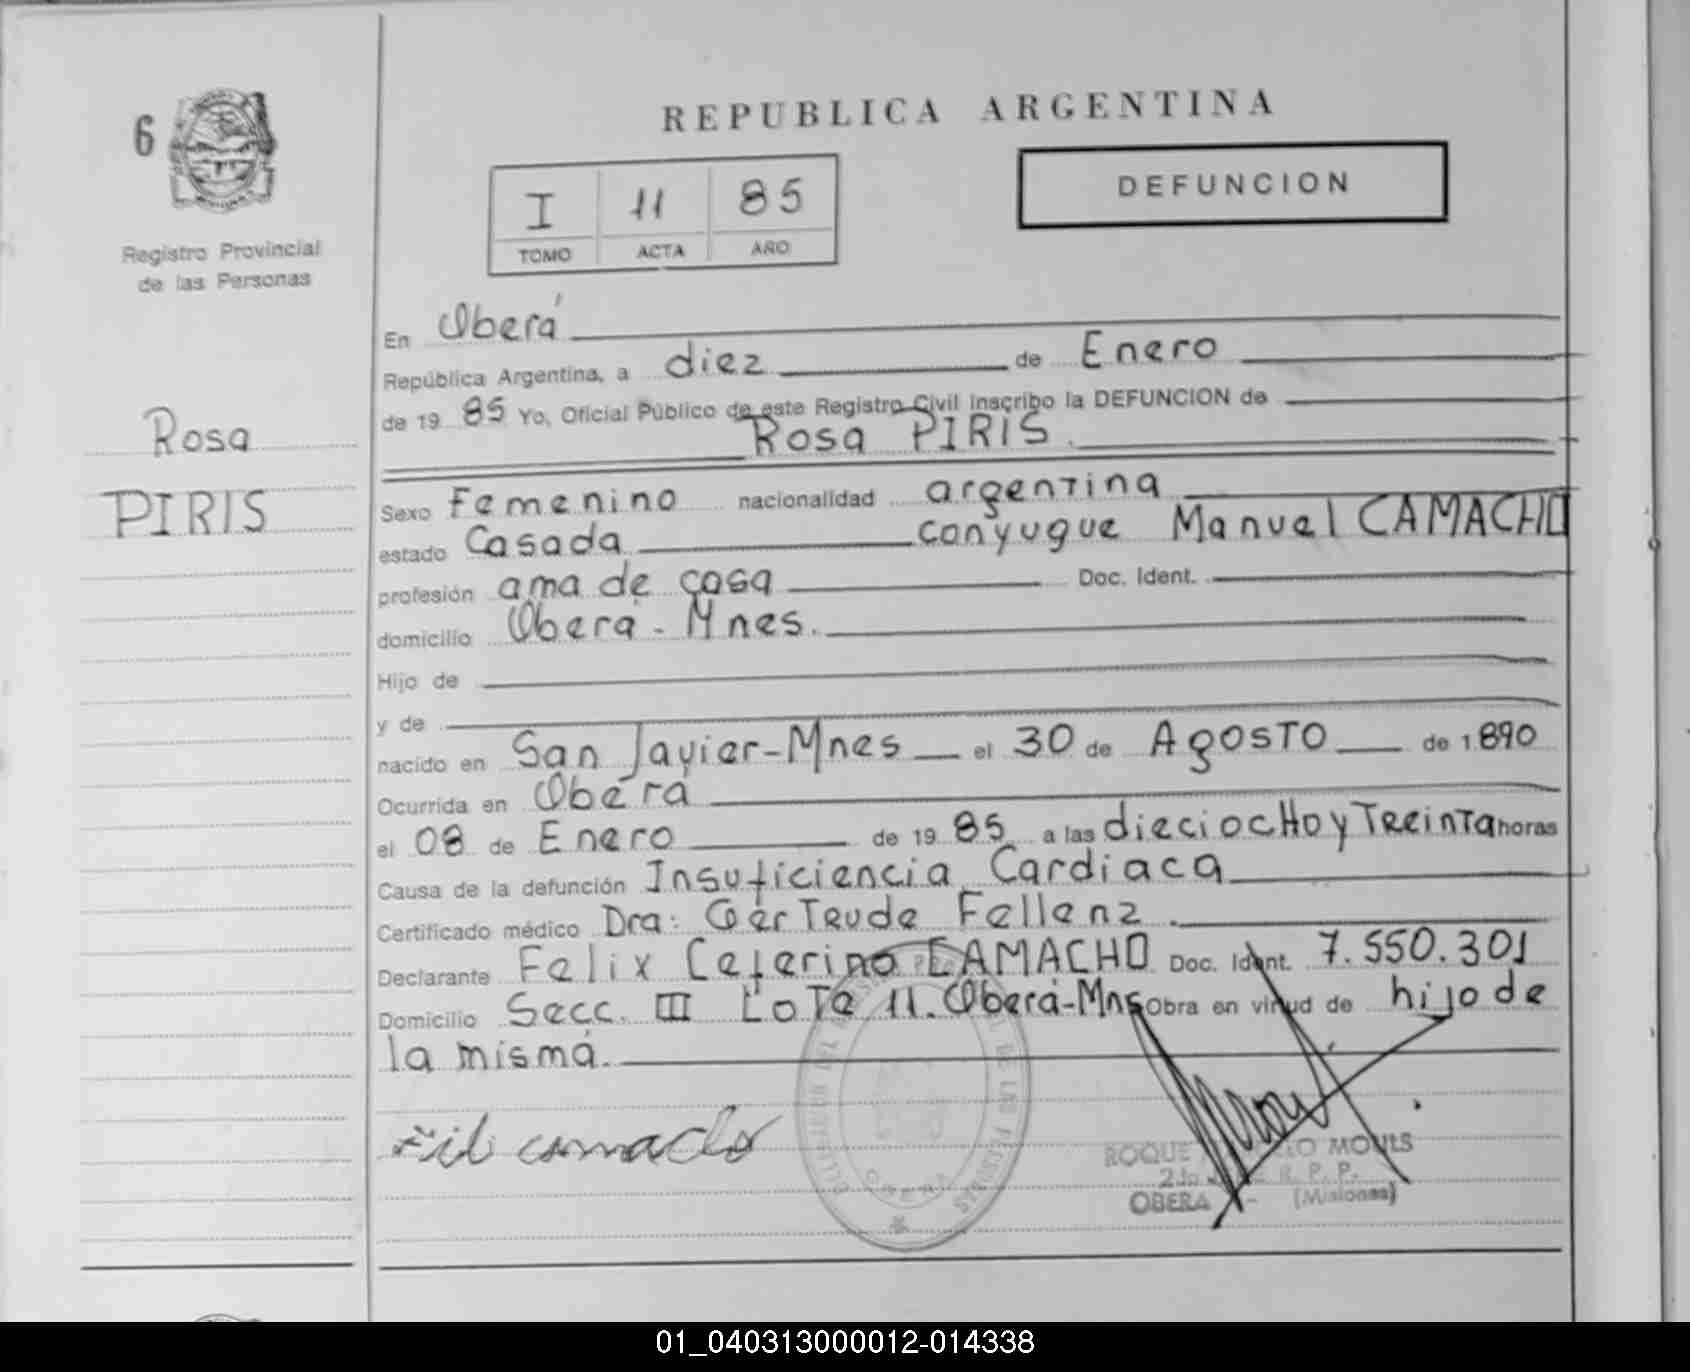 6
Registro Provincial
de las Personas
Rosa
PIRIS
REPUBLICA ARGENTINA
I 11 85
TOMO ACTA AÑO
DEFUNCION
En Oberá
República Argentina, a diez de Enero
de 19 85 Yo, Oficial Público de este Registro Civil inscribo la DEFUNCION de
Rosa PIRIS.
Sexo Femenino nacionalidad argentina
estado Casada conyugue Manuel CAMACHO
profesión ama de casa Doc. Ident.
domicilio Oberá - Mnes.
Hijo de
y de
nacido en San Javier-Mnes el 30 de Agosto de 1890
Ocurrida en Oberá
el 08 de Enero de 19 85 a las dieciocHo y TReinta horas
Causa de la defunción Insuficiencia Cardiaca
Certificado médico Dra: GerTrude Fellenz.
Declarante Felix Ceferino CAMACHO Doc. Ident. 7.550.301
Domicilio Secc. III LoTe 11. Oberá-Mns Obra en virtud de hijo de
la misma.
camacho
ROQUE MOULS
R. P. P.
OBERA - (Misiones)
DE LAS PERSONAS
OBERA
01_040313000012-014338